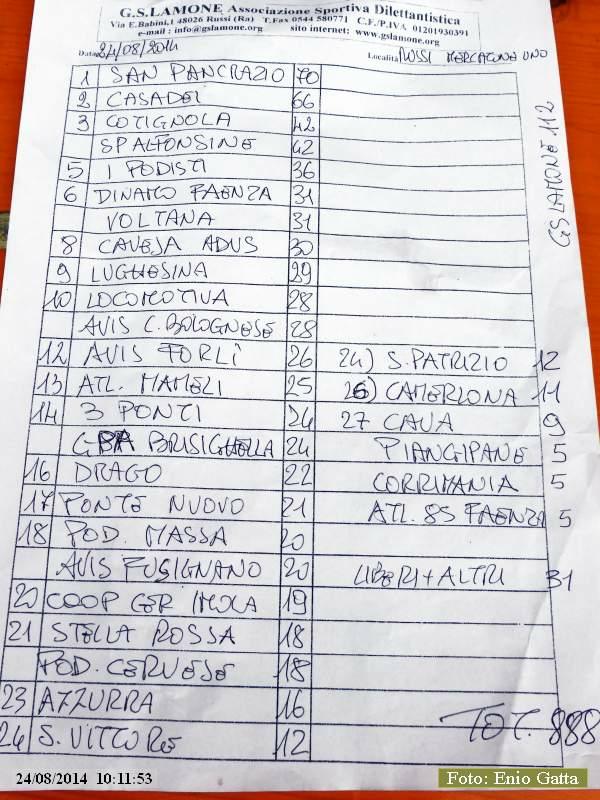 G.S.LAMONE Associazione Sportiva Dilettantistica
Via E.Babini,1 48026 Russi (Ra) T.Fax 0544 580771 C.F./P.IVA 01201930391
e-mail : info@gslamone.org sito internet: www.gslamone.org
Data 24/08/2014 Località RUSSI MERCATONE UNO
1 SAN PANCRAZIO 70
2 CASADEI 66
3 COTIGNOLA 42
SPALFONSINE 42
5 I PODISTI 36
6 DINAMO FAENZA 31
VOLTANA 31
8 CAVEJA ADUS 30
9 LUGHESINA 29
10 LOCOMOTIVA 28
AVIS C. BOLOGNESE 28
12 AVIS FORLÌ 26 24) S. PATRIZIO 12
13 ATL. MAMELI 25 26) CAMERLONA 11
14 3 PONTI 24 27 CAVA 9
BRISIGHELLA 24 PIANGIPANE 5
16 DRAGO 22 CORRIMANIA 5
17 PONTE NUOVO 21 ATL. 85 FAENZA 5
18 POD. MASSA 20
AVIS FUSIGNANO 20 LIBERI + ALTRI 31
20 COOP CER IMOLA 19
21 STELLA ROSSA 18
POD. CERVESE 18
23 AZZURRA 16
24 S. VITTORE 12
TOT. 888
GS LAMONE 112
24/08/2014 10:11:53
Foto: Enio Gatta